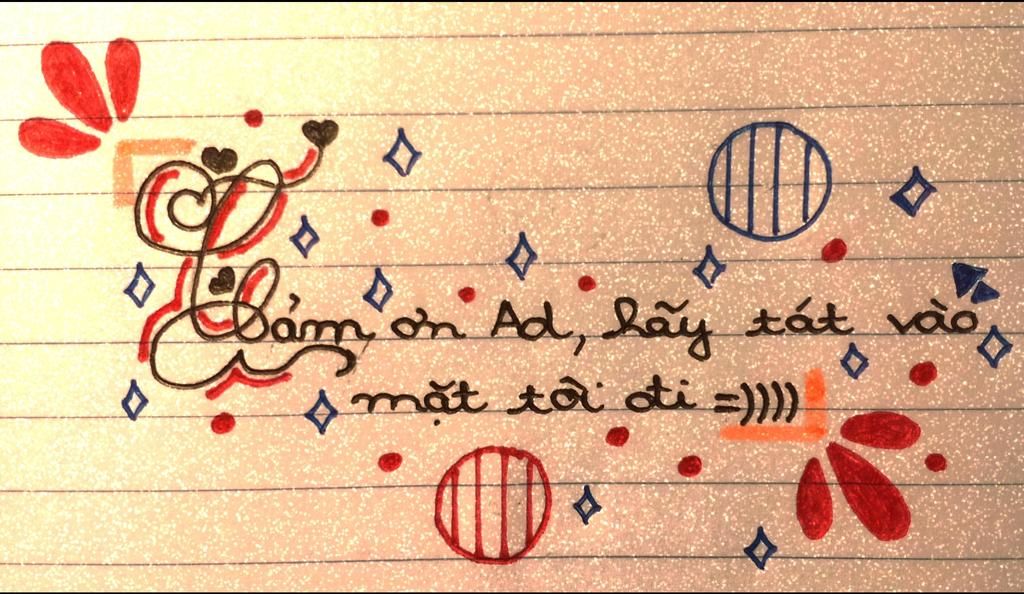 Cảm ơn Ad, hãy tát vào
mặt tôi đi =))))